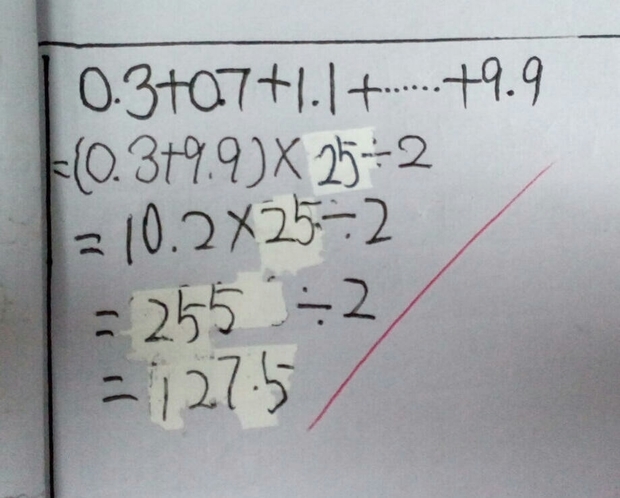 0.3+0.7+1.1+……+9.9
=(0.3+9.9)×25÷2
=10.2×25÷2
=255÷2
=127.5